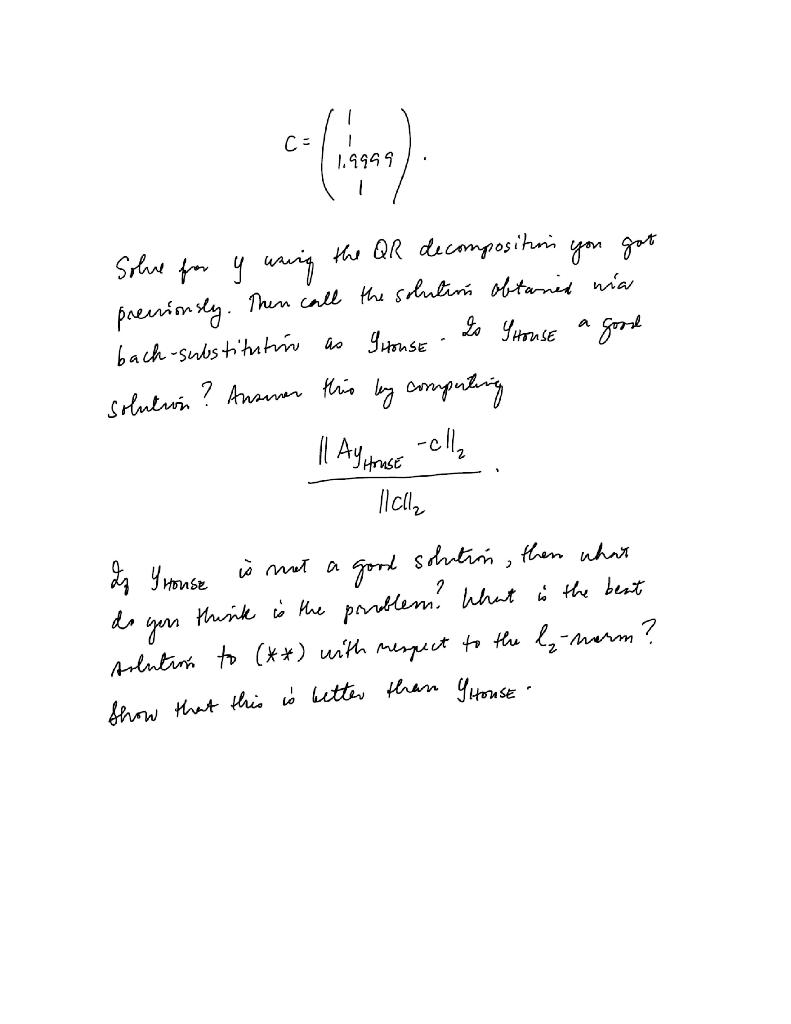 C = ( 1
1
1.9999 ) .
1
Solve for y using the QR decomposition you got
previously. Then call the solution obtained via
back-substitution as y_HOUSE. Is y_HOUSE a good
solution? Answer this by computing
||Ay_HOUSE - c||_2
||c||_2 .
If y_HOUSE is not a good solution, then what
do you think is the problem? What is the best
solution to (**) with respect to the l_2-norm?
Show that this is better than y_HOUSE.